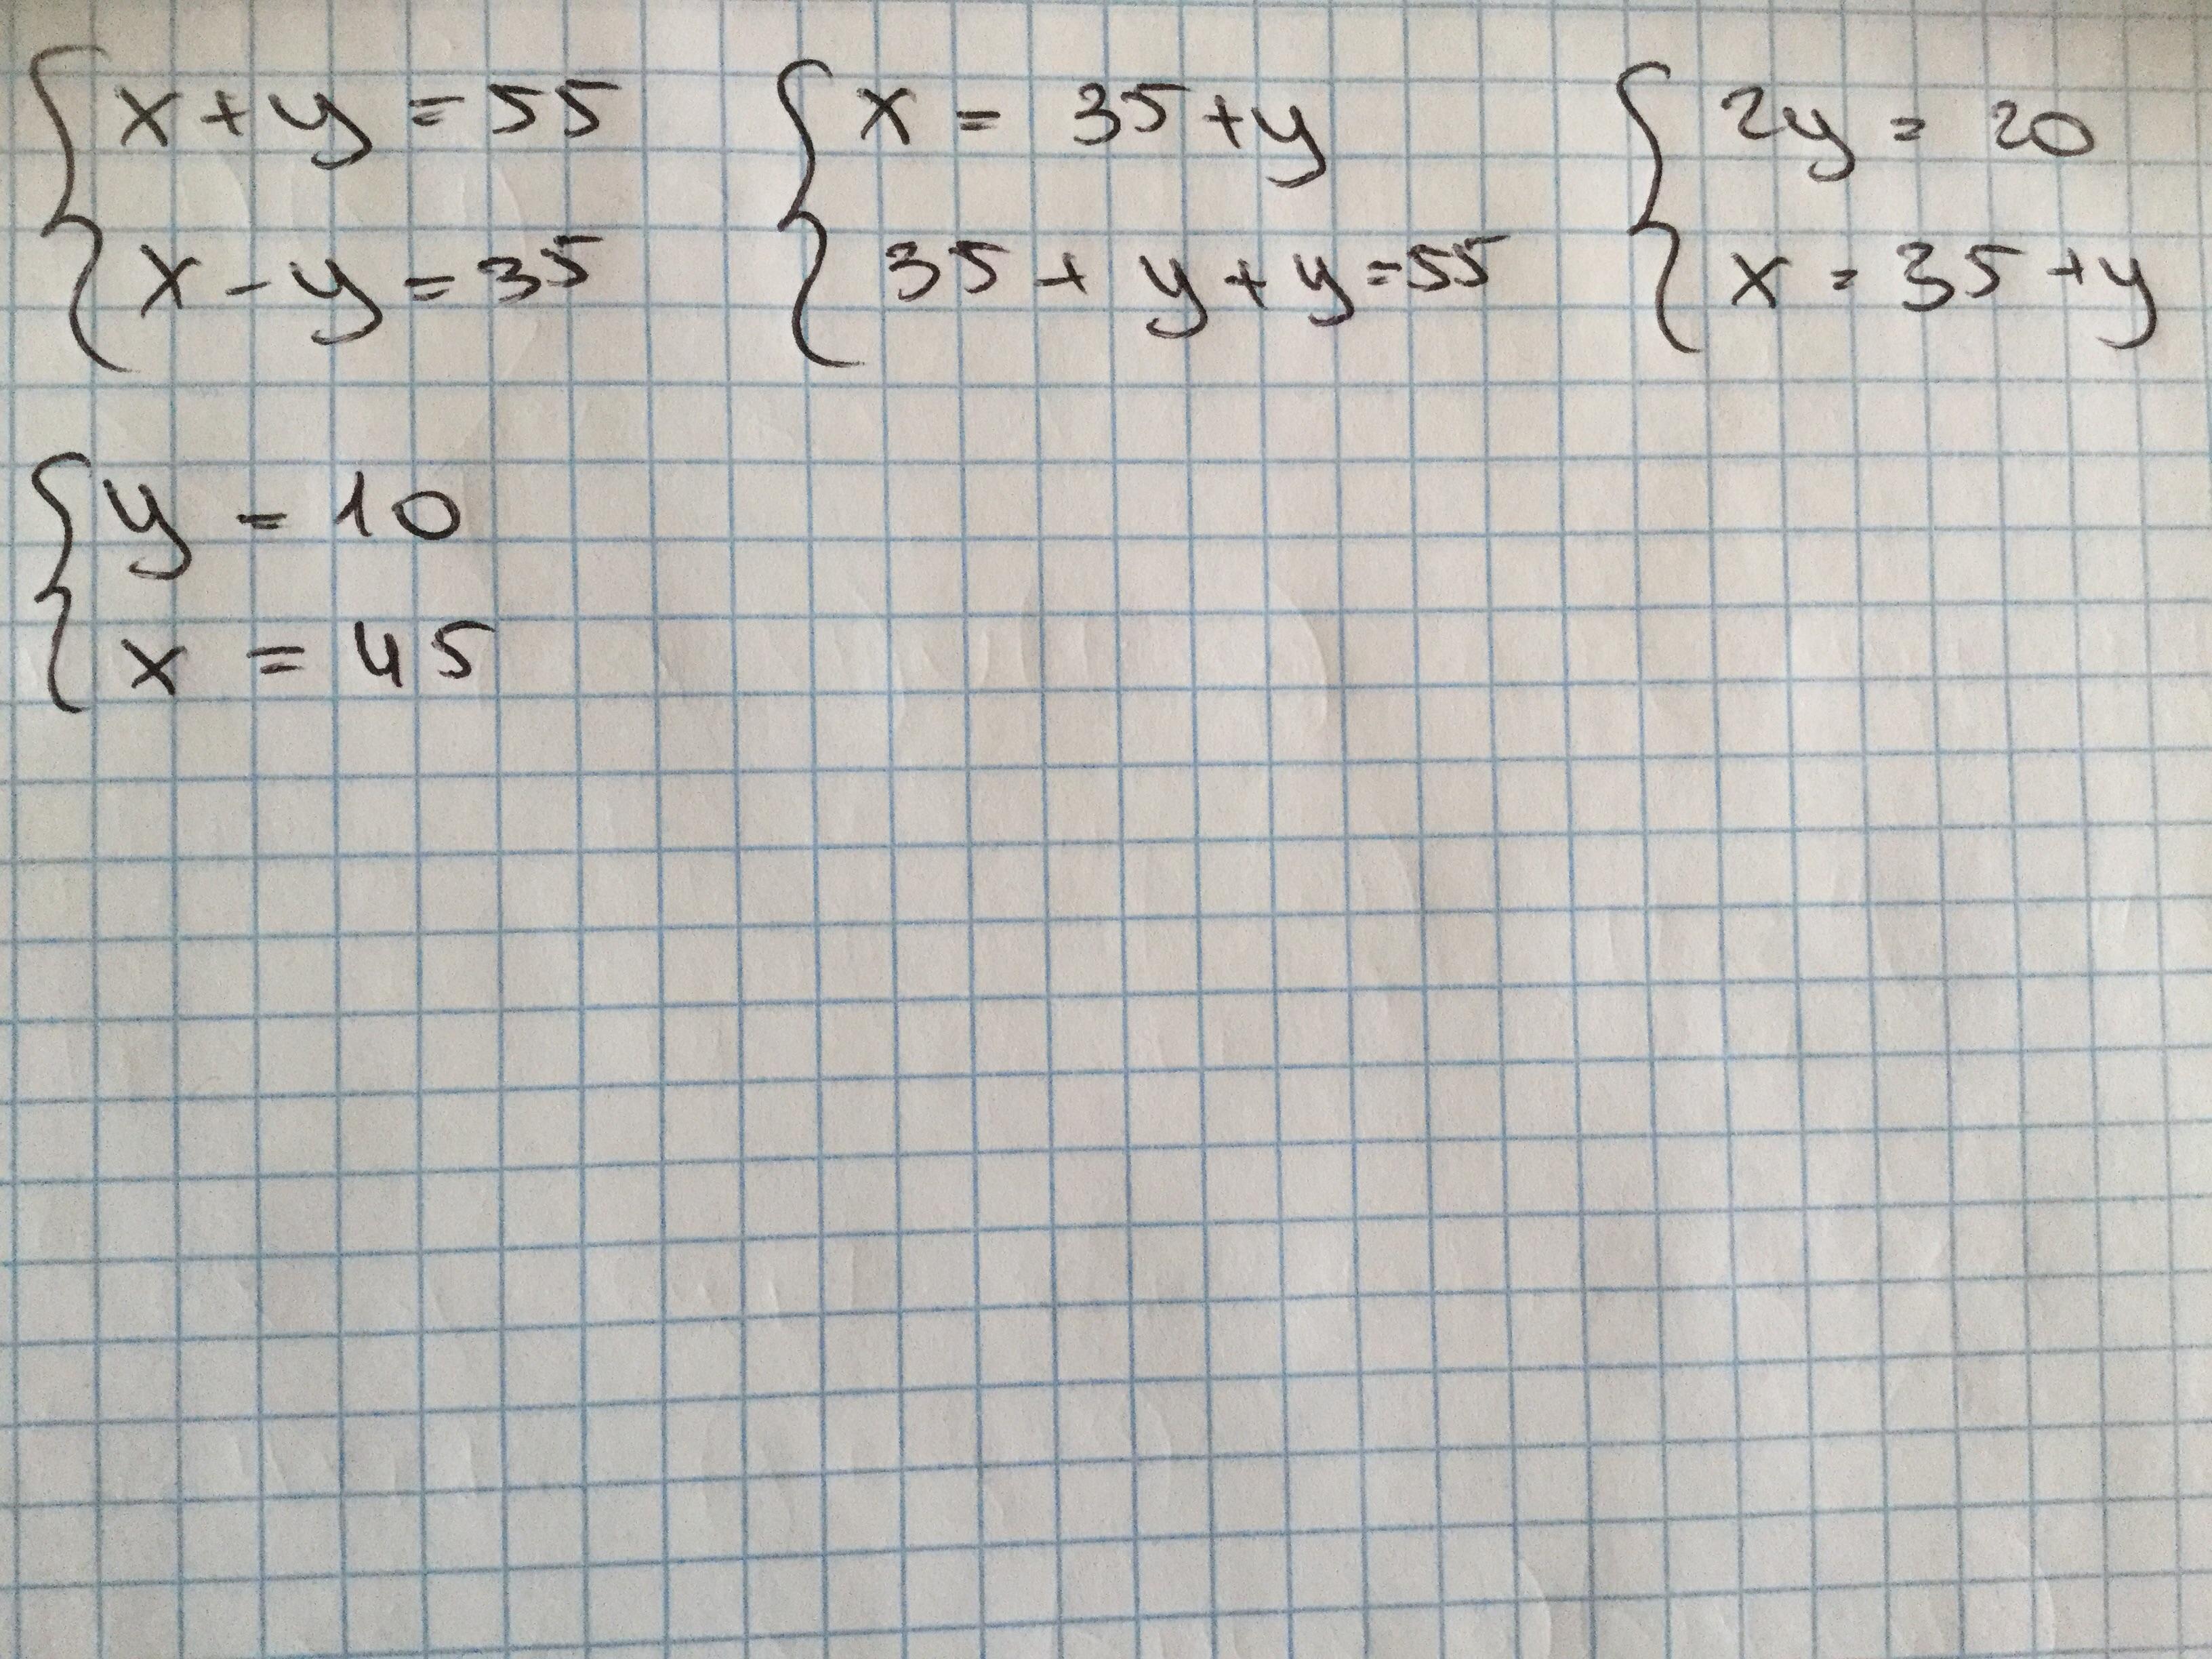 x + y = 55
x - y = 35
x = 35 + y
35 + y + y = 55
2y = 20
x = 35 + y
y = 10
x = 45